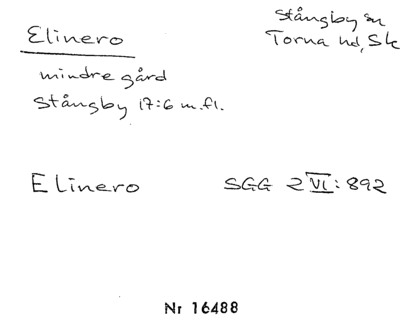 Elinero
Stångby sn
Torna hd, Sk
mindre gård
Stångby 17:6 m.fl.
Elinero SGG 2 VI: 892
Nr 16488